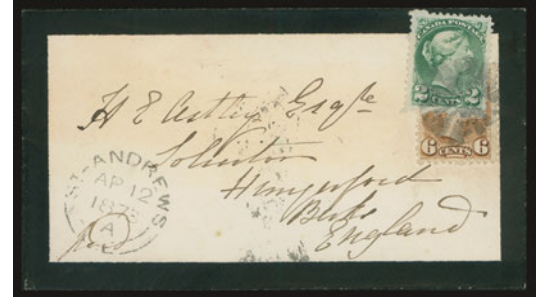 CANADA POSTAGE
2 CENTS 2
6 CENTS 6
H E Astley Esqre
Solicitor
Hungerford
Berks
England
ST. ANDREWS
AP 12
187
A